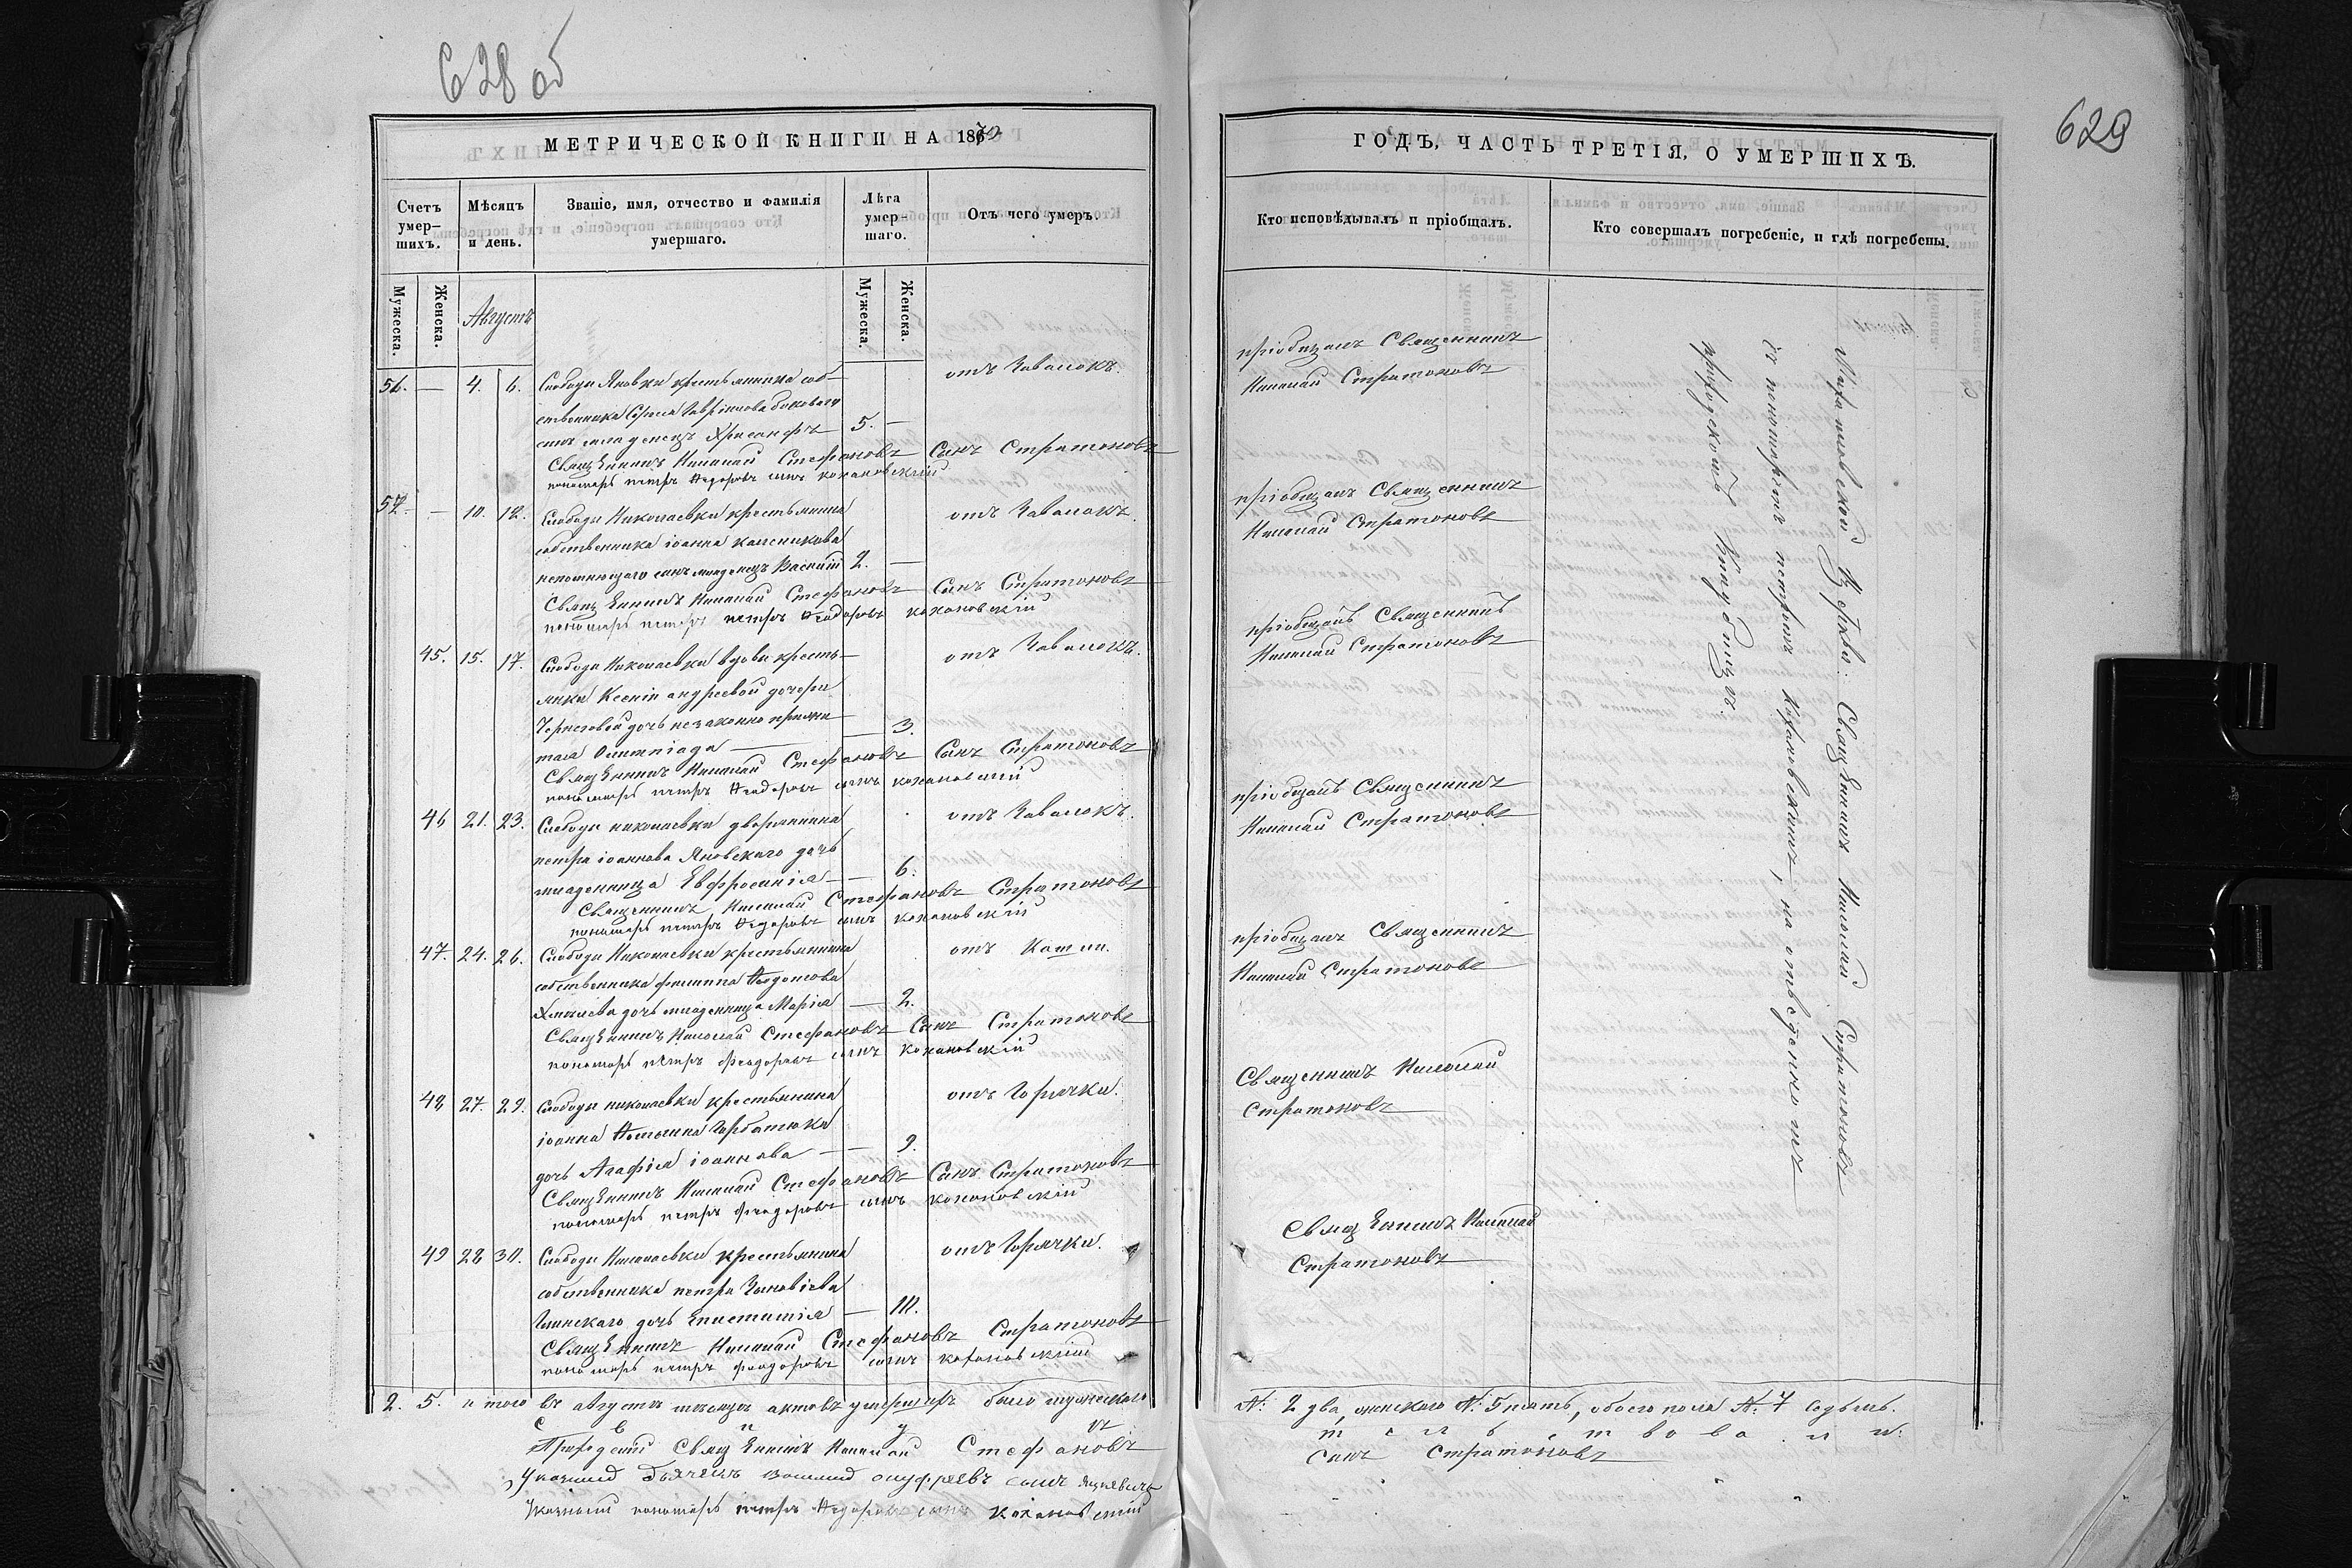 628 об
629
МЕТРИЧЕСКОЙ КНИГИ НА 1870
ГОДЪ, ЧАСТЬ ТРЕТІЯ, О УМЕРШИХЪ.
Счетъ умер-шихъ.
Мѣсяцъ и день.
Званіе, имя, отчество и фамилія умершаго.
Лѣта умер-шаго.
Отъ чего умеръ.
Кто исповѣдывалъ и пріобщалъ.
Кто совершалъ погребеніе, и гдѣ погребены.
Мужеска.
Женска.
Августъ
Мужеска.
Женска.
56. — 4. 6. Слободы Яновки крестьянина соб-
ственника
сынъ младенецъ Хрисанфъ 5. —
отъ Завалокъ.
пріобщалъ Священникъ
Николай Стратоновъ
Священникъ Николай Стефановъ Сынъ Стратоновъ
пономарь петръ Ѳедоровъ сынъ кохановскій
57. — 10. 12. Слободы Николаевки крестьянина
собственника іоанна
сынъ младенецъ Василій 2. —
отъ Завалокъ.
пріобщалъ Священникъ
Николай Стратоновъ
Священникъ Николай Стефановъ Сынъ Стратоновъ
пономарь петръ петръ Ѳеодоровъ кохановскій
45. 15. 17. Слободы Николаевки вдовы кресть-
янки Ксеніи андреевой дочери
дочь незаконно прижи-
тая Олимпіада — 3.
отъ Завалокъ.
пріобщалъ Священникъ
Николай Стратоновъ
Священникъ Николай Стефановъ Сынъ Стратоновъ
пономарь петръ Ѳеодоровъ сынъ кохановскій
46 21. 23. Слободы николаевки дворянина
петра іоаннова Яновскаго дочь
младеница Евфросинія — 6.
отъ Завалокъ.
пріобщалъ Священникъ
Николай Стратоновъ
Священникъ Николай Стефановъ Стратоновъ
пономарь петръ Ѳедоровъ сынъ кохановскій
47. 24. 26. Слободы Николаевки крестьянина
собственника филиппа
дочь младеница Марія — 2.
отъ Кашли.
пріобщалъ Священникъ
Николай Стратоновъ
Священникъ Николай Стефановъ Сынъ Стратоновъ
пономарь петръ Феодоровъ сынъ кохановскій
48 27. 29. Слободы николаевки крестьянина
іоанна Горбатюка
дочь Агафія іоаннова — 9.
отъ Горячки.
Священникъ Николай
Стратоновъ
Священникъ Николай Стефановъ Сынъ Стратоновъ
пономарь петръ Феодоровъ сынъ кохановскій
49 28 30. Слободы Николаевки крестьянина
собственника петра Зиновіева
дочь Епистимія — 10.
отъ Горячки.
Священникъ Николай
Стратоновъ
Священникъ Николай Стефановъ Стратоновъ
пономарь петръ феодоровъ сынъ кохановскій
церкви Священникъ Николай Стратоновъ
съ пономаремъ петромъ Кохановскимъ, на отведенномъ
приходскомъ кладбищѣ.
2. 5. итого въ августѣ мѣсяцѣ актовъ умершихъ было мужескаго
№: 2 два, женскаго №: 5 пять, обоего пола №. 7 седьмь.
С в и д ѣ т е л ь с т в о в а л и:
Приходскій Священникъ Николай Стефановъ
сынъ Стратоновъ
Указный дьячекъ Василій онуфріевъ сынъ
Указный пономарь петръ Ѳедоровъ сынъ кохановскій